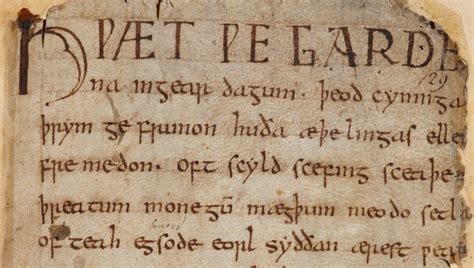 HǷÆT ǷE GARDE
129
na ingear dagum. þeod cyninga
þrym ge frunon huða æþelingas elle
fremedon. oft scyld scefing sceaþe
þreatum monegū mægþum meodo setla
of teah egsode eorl syððan ærest